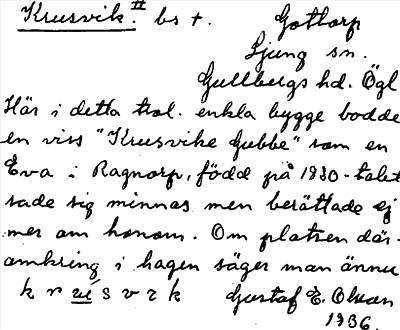 Krusvik. II bs t. Gottorp
Ljung sn.
Gullbergs hd. Ögl
Här i detta trol. enkla bygge bodde
en viss "Krusvike Gubbe" som en
Eva i Ragnorp, född på 1830-talet
sade sig minnas men berättade ej
mer om honom. Om platsen där-
omkring i hagen säger man ännu
k r ú s v ɩ k Gustaf E. Olsson
1936.